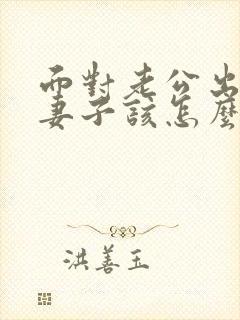 面對老公出
妻子該怎麼
洪善玉